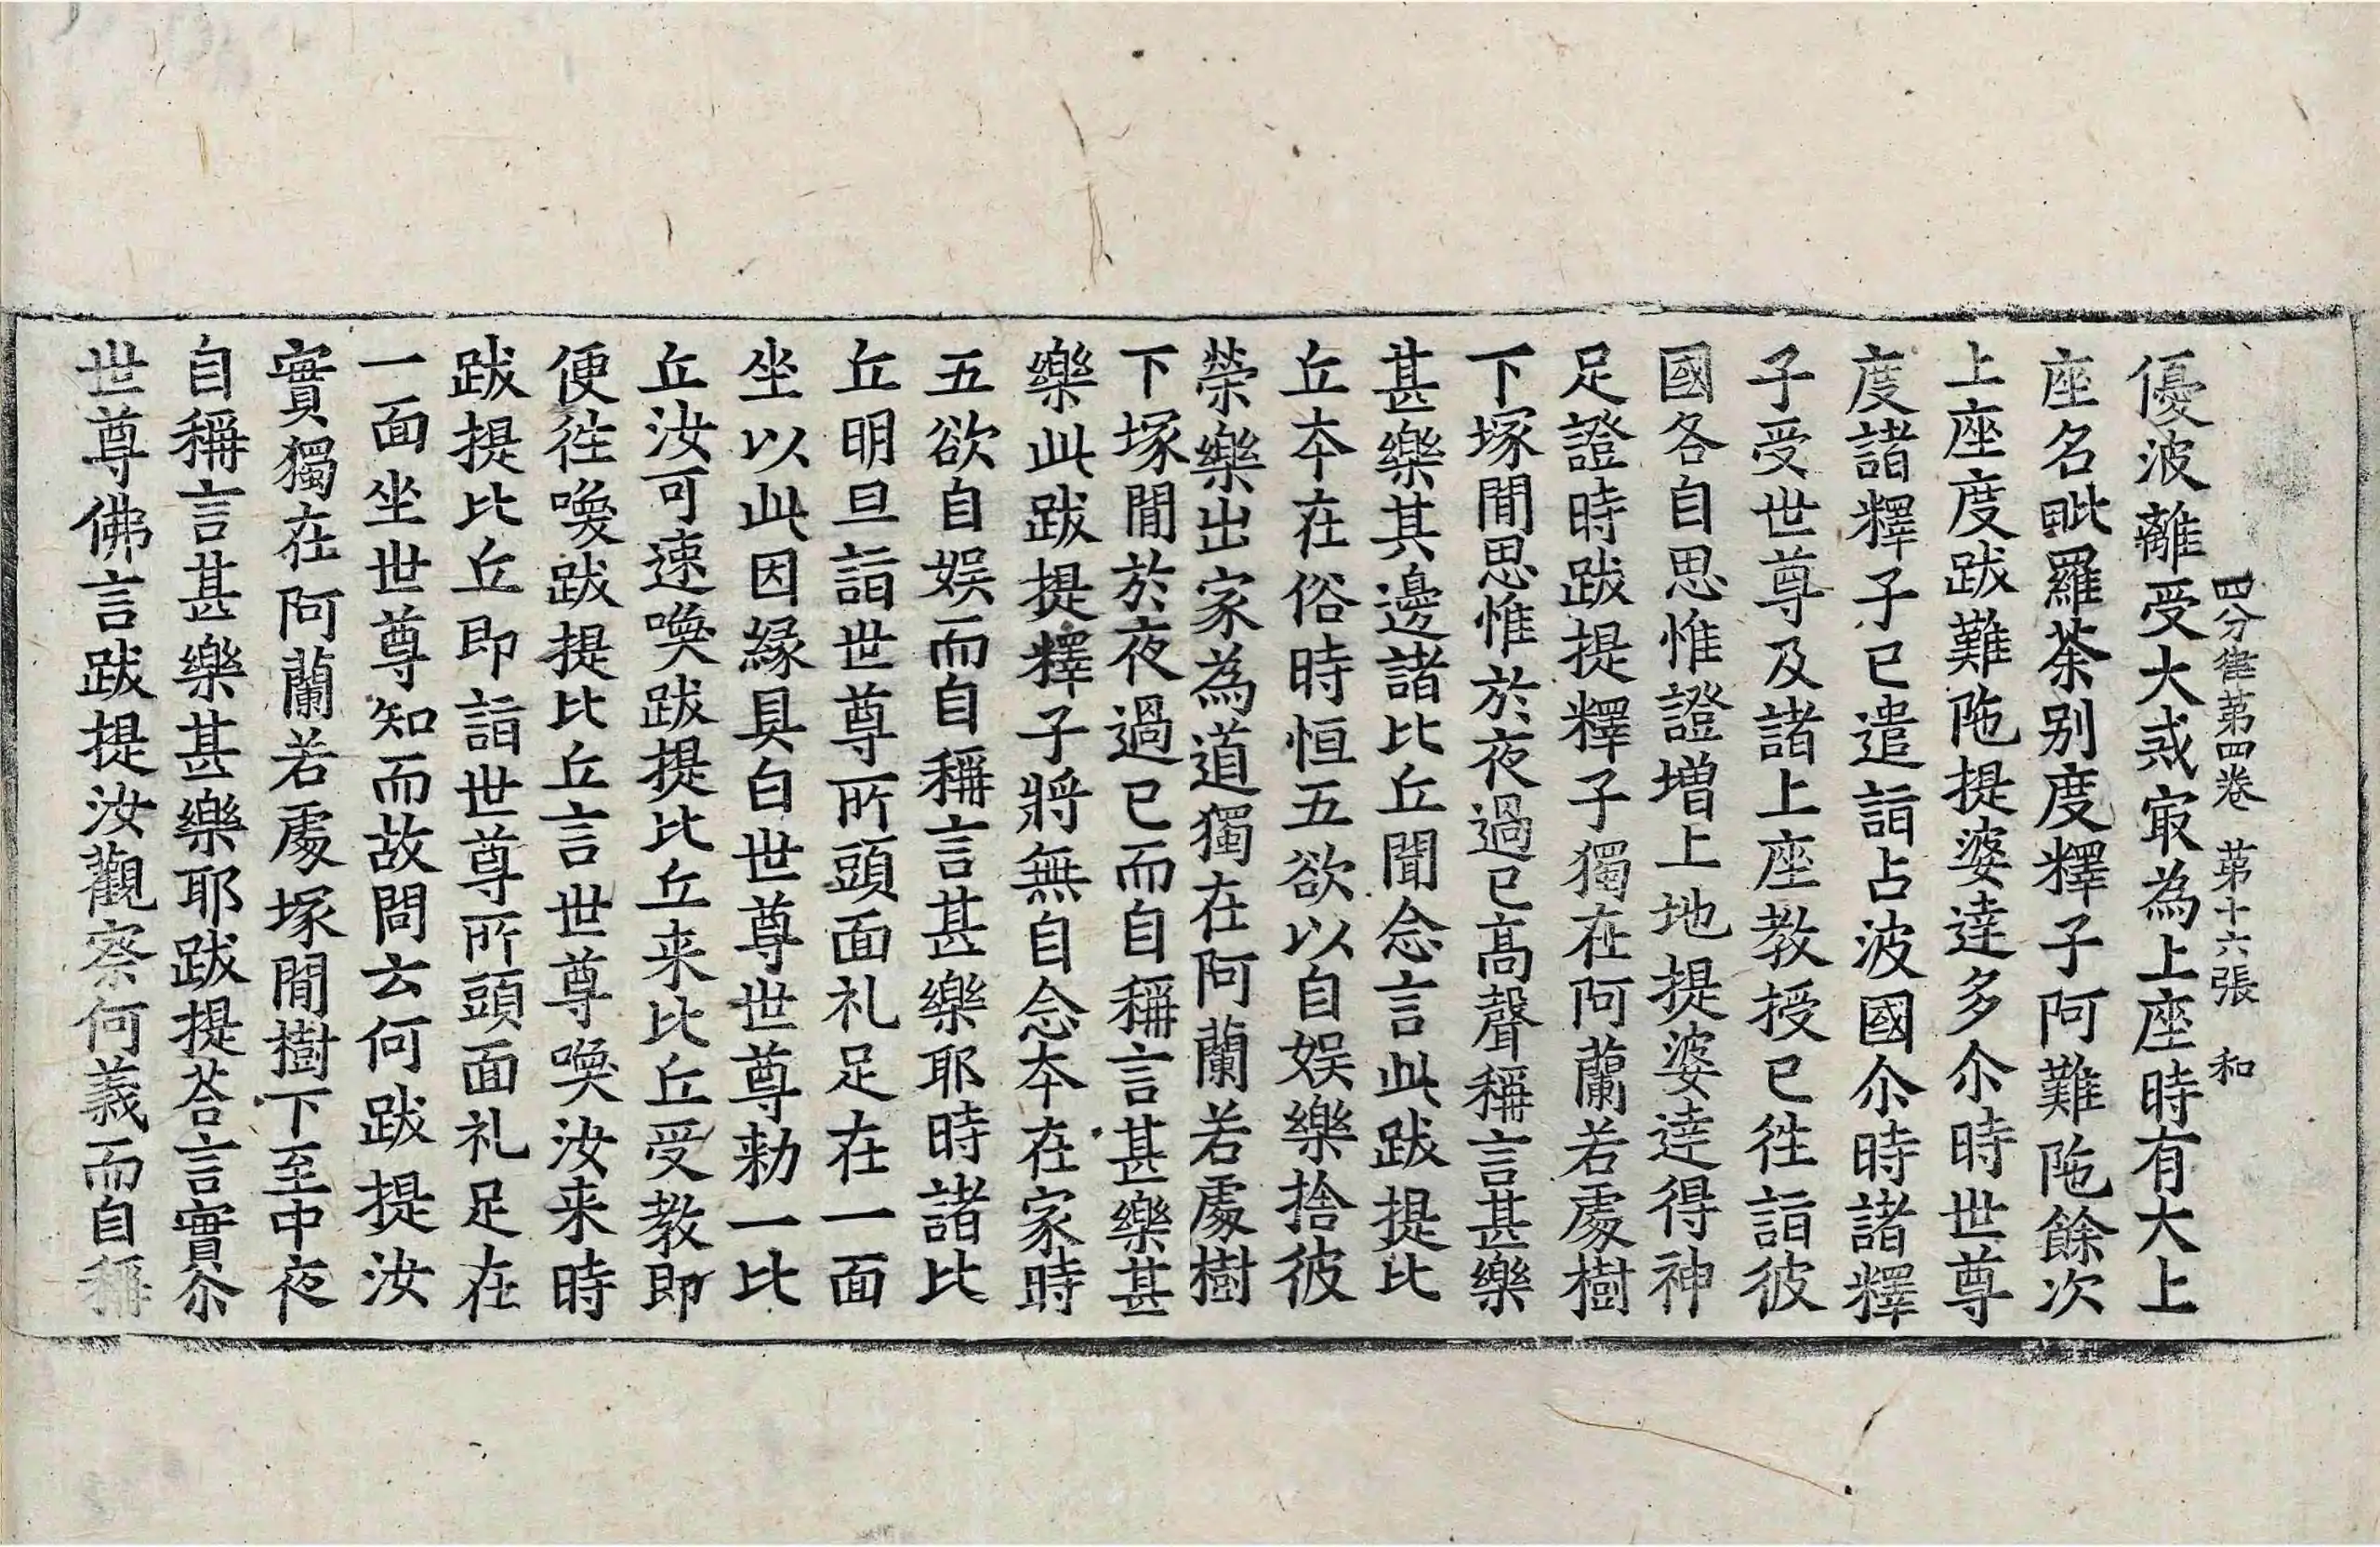 四分律第四卷 第十六張 和
優波離受大戒冣為上座時有大上
座名毗羅荼别度釋子阿難陁餘次
上座度跋難陁提婆達多尒時世尊
度諸釋子已遣詣占波國尒時諸釋
子受世尊及諸上座教授已徃詣彼
國各自思惟證增上地提婆達得神
足證時跋提釋子獨在阿蘭若處樹
下塚閒思惟於夜過已高聲稱言甚樂
甚樂其邊諸比丘聞念言此跋提比
丘本在俗時恒五欲以自娱樂捨彼
榮樂出家為道獨在阿蘭若處樹
下塚閒於夜過已而自稱言甚樂甚
樂此跋提釋子將無自念本在家時
五欲自娱而自稱言甚樂耶時諸比
丘明旦詣世尊所頭面礼足在一面
坐以此因緣具白世尊世尊勑一比
丘汝可速喚跋提比丘来比丘受教即
便徃喚跋提比丘言世尊喚汝来時
跋提比丘即詣世尊所頭面礼足在
一面坐世尊知而故問云何跋提汝
實獨在阿蘭若處塚閒樹下至中夜
自稱言甚樂甚樂耶跋提荅言實尒
世尊佛言跋提汝觀察何義而自稱